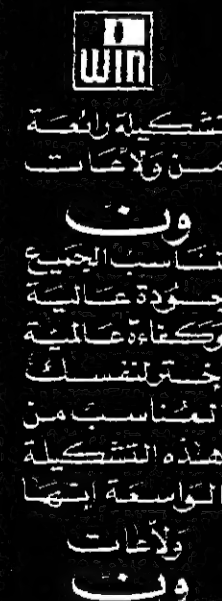 WIN
تشكيلة رائعة
من ولاعات
ون
تناسب الجميع
جودة عالية
وكفاءة عالمية
اختر لنفسك
المناسب من
هذه التشكيلة
الواسعة إنها
ولاعات
ون